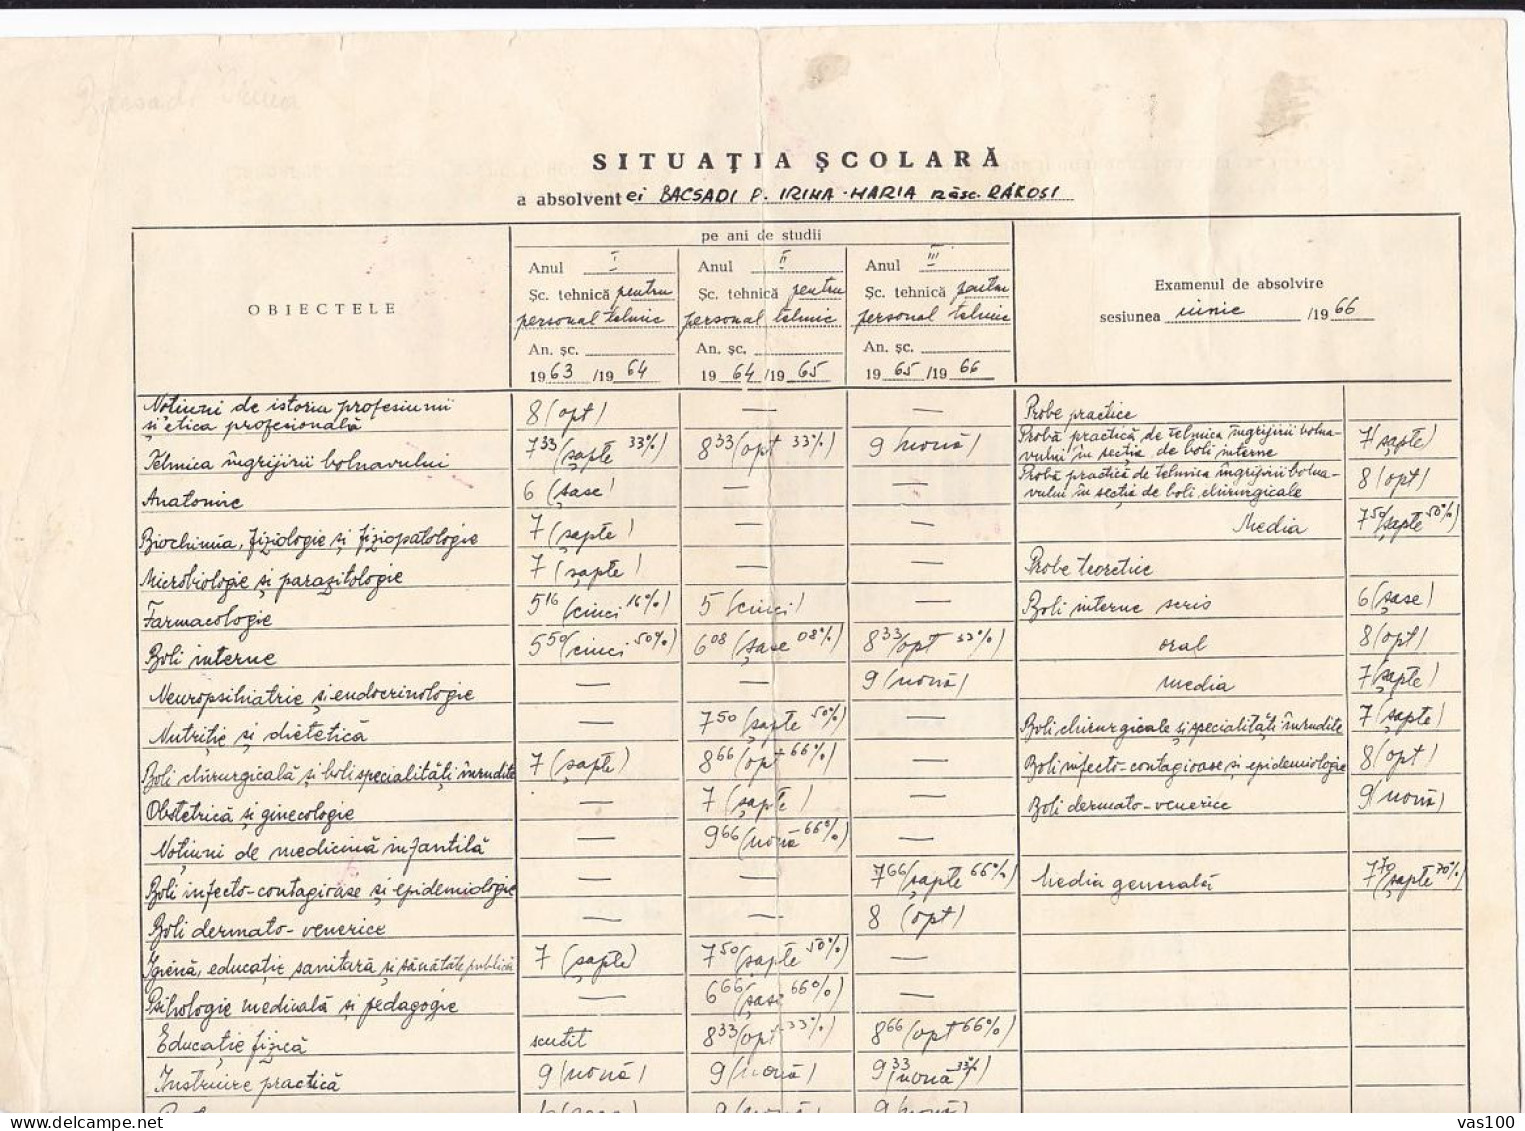 Bacsadi Irina
SITUAȚIA ȘCOLARĂ
a absolvent ei BACSADI P. IRINA-MARIA născ. RÁKOSI
OBIECTELE
pe ani de studii
Anul I
Șc. tehnică pentru
personal tehnic
An. șc.
1963/1964
Anul II
Șc. tehnică pentru
personal tehnic
An. șc.
1964/1965
Anul III
Șc. tehnică pentru
personal tehnic
An. șc.
1965/1966
Examenul de absolvire
sesiunea iunie /1966
Noțiuni de istoria profesiunii
și etica profesională 8 (opt) — —
Tehnica îngrijirii bolnavului 7 33 (șapte 33%) 8 33 (opt 33%) 9 (nouă)
Anatomie 6 (șase) — —
Biochimia, fiziologie și fiziopatologie 7 (șapte) — —
Microbiologie și parazitologie 7 (șapte) — —
Farmacologie 5 16 (cinci 16%) 5 (cinci) —
Boli interne 5 50 (cinci 50%) 6 08 (șase 08%) 8 33 (opt 33%)
Neuropsihiatrie și endocrinologie — — 9 (nouă)
Nutriție și dietetică — 7 50 (șapte 50%) —
Boli chirurgicală și boli specialități înrudite 7 (șapte) 8 66 (opt 66%) —
Obstetrică și ginecologie — 7 (șapte) —
Noțiuni de medicină infantilă — 9 66 (nouă 66%) —
Boli infecto-contagioase și epidemiologie — — 7 66 (șapte 66%)
Boli dermato-venerice — — 8 (opt)
Igienă, educație sanitară și sănătate publică 7 (șapte) 7 50 (șapte 50%) —
Psihologie medicală și pedagogie — 6 66 (șase 66%) —
Educație fizică scutit 8 33 (opt 33%) 8 66 (opt 66%)
Instruire practică 9 (nouă) 9 (nouă) 9 33 (nouă 33%)
9 (nouă) 9 (nouă)
Probe practice
Probă practică de tehnica îngrijirii bolna-
vului în secția de boli interne 7 (șapte)
Probă practică de tehnica îngrijirii bolna-
vului în secția de boli chirurgicale 8 (opt)
Media 7 50 (șapte 50%)
Probe teoretice
Boli interne scris 6 (șase)
oral 8 (opt)
media 7 (șapte)
Boli chirurgicale și specialități înrudite 7 (șapte)
Boli infecto-contagioase și epidemiologie 8 (opt)
Boli dermato-venerice 9 (nouă)
Media generală 7 70 (șapte 70%)
vas100